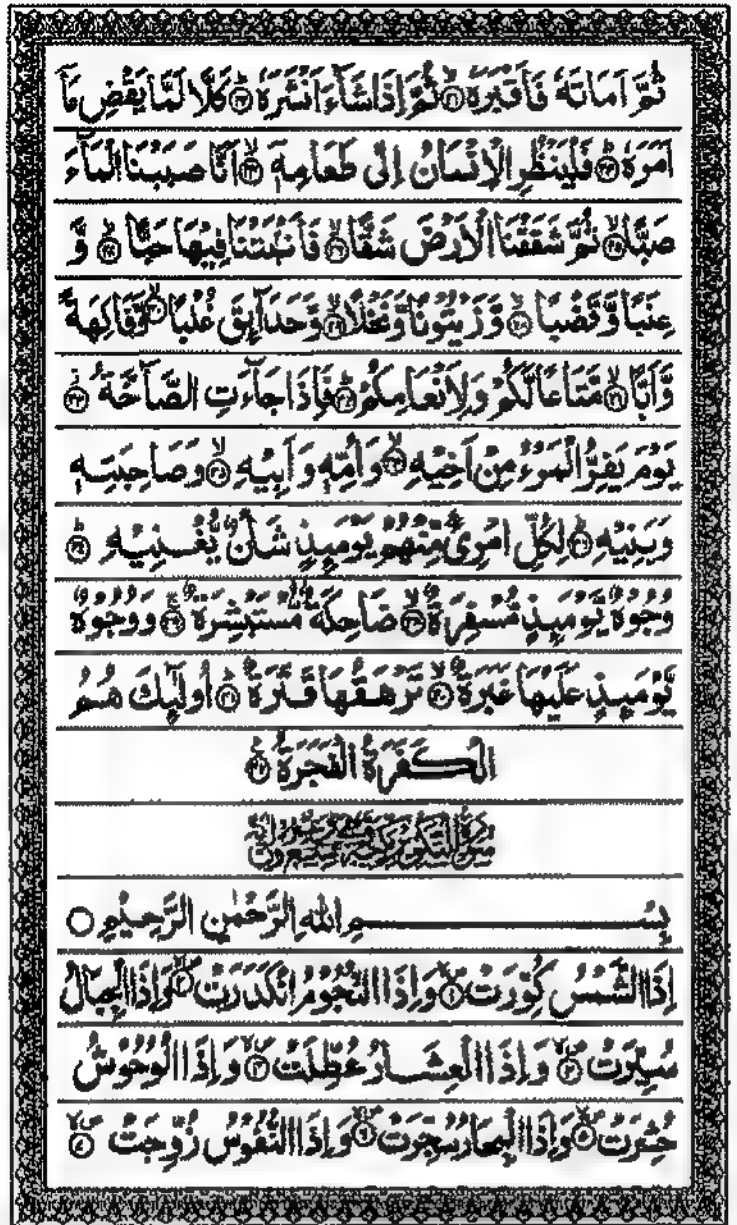 ثُمَّ اَمَاتَهٗ فَاَقْبَرَهٗ ۙ﴿۲۱﴾ ثُمَّ اِذَا شَآءَ اَنْشَرَهٗ ؕ﴿۲۲﴾ كَلَّا لَمَّا يَقْضِ مَاۤ
اَمَرَهٗ ؕ﴿۲۳﴾ فَلْيَنْظُرِ الْاِنْسَانُ اِلٰى طَعَامِهٖۤ ۙ﴿۲۴﴾ اَنَّا صَبَبْنَا الْمَآءَ
صَبًّا ۙ﴿۲۵﴾ ثُمَّ شَقَقْنَا الْاَرْضَ شَقًّا ۙ﴿۲۶﴾ فَاَنْۢبَتْنَا فِيْهَا حَبًّا ۙ﴿۲۷﴾ وَّ
عِنَبًا وَّقَضْبًا ۙ﴿۲۸﴾ وَّزَيْتُوْنًا وَّنَخْلًا ۙ﴿۲۹﴾ وَّحَدَآئِقَ غُلْبًا ۙ﴿۳۰﴾ وَّفَاكِهَةً
وَّاَبًّا ۙ﴿۳۱﴾ مَّتَاعًا لَّكُمْ وَلِاَنْعَامِكُمْ ؕ﴿۳۲﴾ فَاِذَا جَآءَتِ الصَّآخَّةُ ۫﴿۳۳﴾
يَوْمَ يَفِرُّ الْمَرْءُ مِنْ اَخِيْهِ ۙ﴿۳۴﴾ وَاُمِّهٖ وَاَبِيْهِ ۙ﴿۳۵﴾ وَصَاحِبَتِهٖ
وَبَنِيْهِ ؕ﴿۳۶﴾ لِكُلِّ امْرِئٍ مِّنْهُمْ يَوْمَئِذٍ شَاْنٌ يُّغْنِيْهِ ؕ﴿۳۷﴾
وُجُوْهٌ يَّوْمَئِذٍ مُّسْفِرَةٌ ۙ﴿۳۸﴾ ضَاحِكَةٌ مُّسْتَبْشِرَةٌ ۚ﴿۳۹﴾ وَوُجُوْهٌ
يَّوْمَئِذٍ عَلَيْهَا غَبَرَةٌ ۙ﴿۴۰﴾ تَرْهَقُهَا قَتَرَةٌ ؕ﴿۴۱﴾ اُولٰٓئِكَ هُمُ
الْكَفَرَةُ الْفَجَرَةُ ﴿۴۲﴾
بِسْمِ اللّٰهِ الرَّحْمٰنِ الرَّحِيْمِ ○
اِذَا الشَّمْسُ كُوِّرَتْ ۙ﴿۱﴾ وَاِذَا النُّجُوْمُ انْكَدَرَتْ ۙ﴿۲﴾ وَاِذَا الْجِبَالُ
سُيِّرَتْ ۙ﴿۳﴾ وَاِذَا الْعِشَارُ عُطِّلَتْ ۙ﴿۴﴾ وَاِذَا الْوُحُوْشُ
حُشِرَتْ ۙ﴿۵﴾ وَاِذَا الْبِحَارُ سُجِّرَتْ ۙ﴿۶﴾ وَاِذَا النُّفُوْسُ زُوِّجَتْ ۙ﴿۷﴾